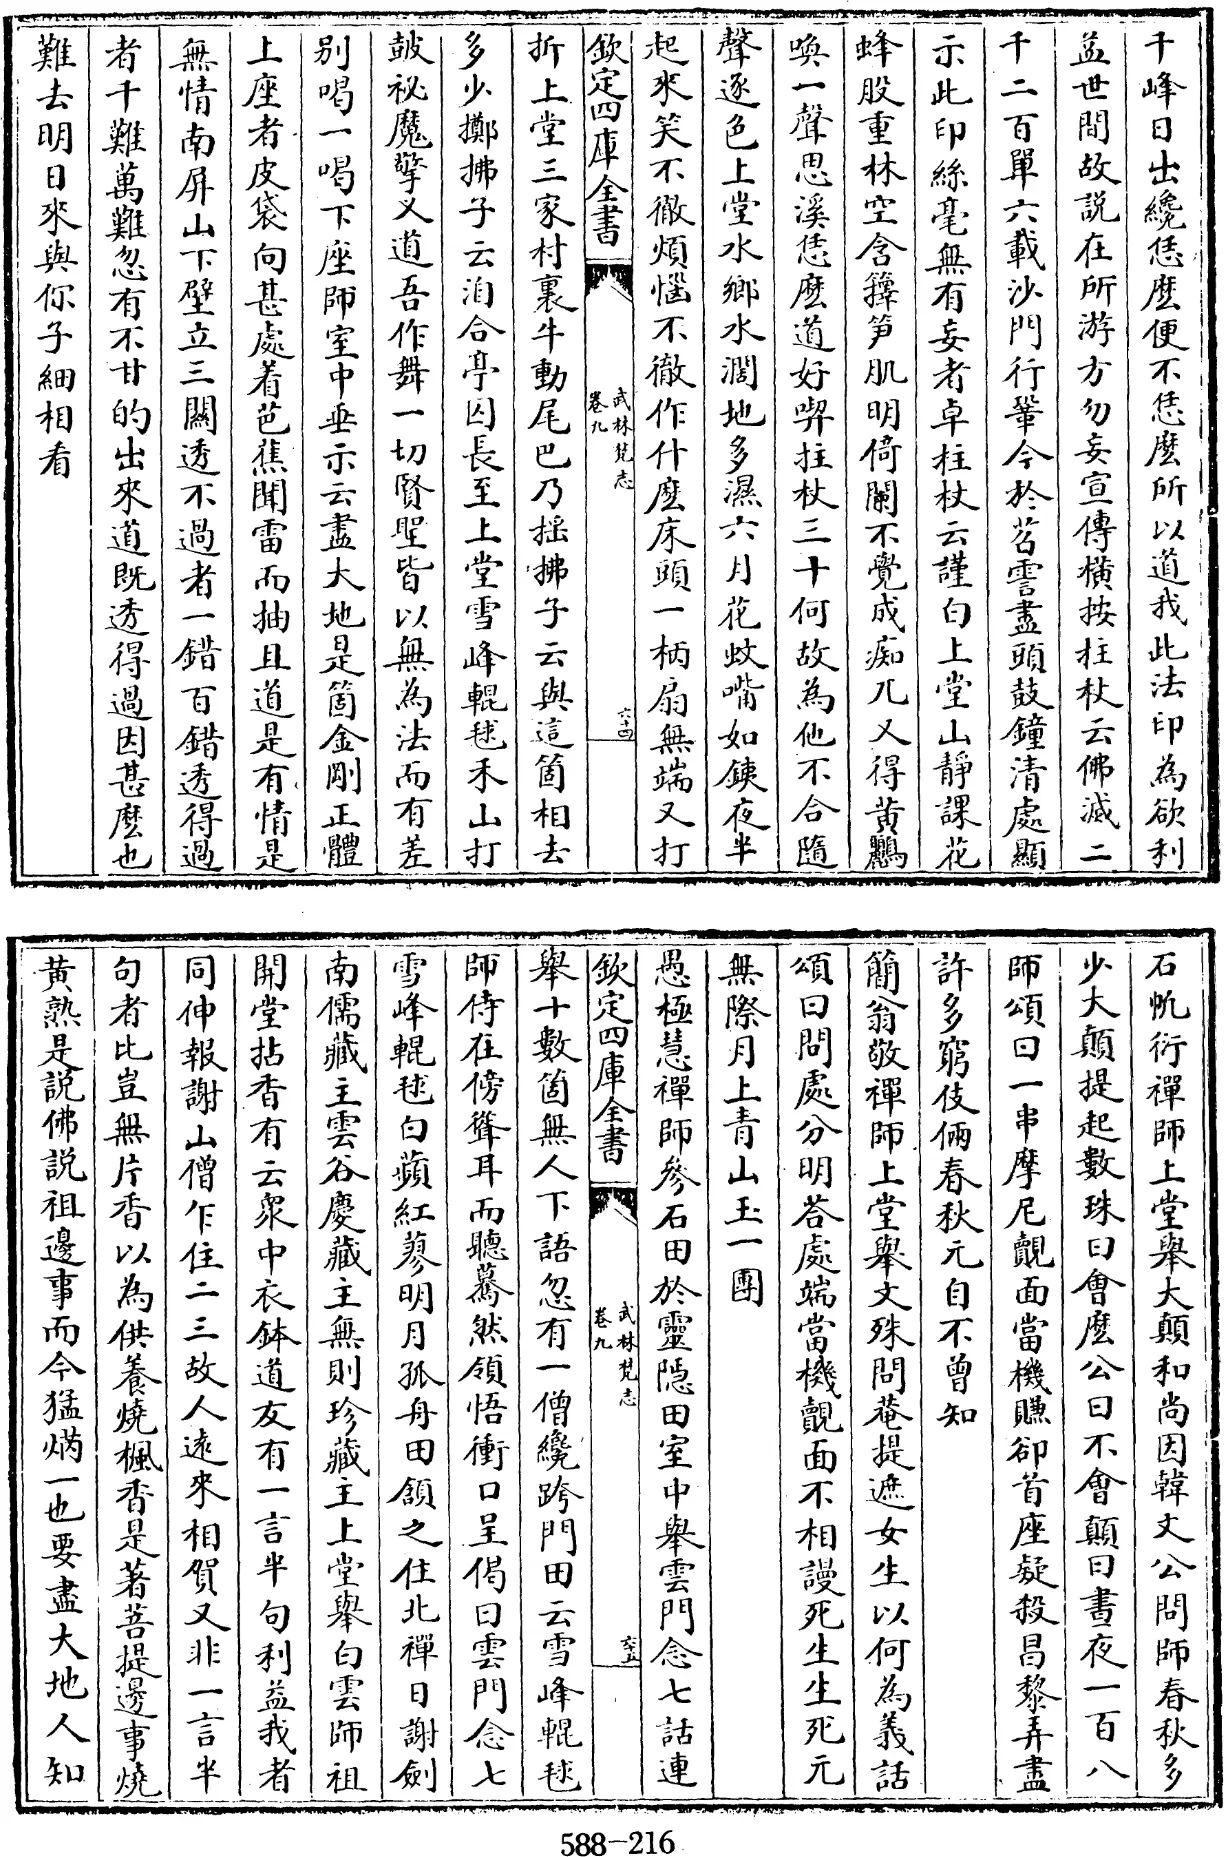 千峰日出纔恁麽便不恁麽所以道我此法印為欲利
益世間故説在所游方勿妄宣傳橫按拄杖云佛滅二
千二百單六載沙門行鞏今於苕霅盡頭鼓鐘清處顯
示此印絲毫無有妄者卓柱杖云謹白上堂山靜課花
蜂股重林空含籜笋肌明倚闌不覺成痴兀又得黄鸝
喚一聲思溪恁麽道好喫拄杖三十何故為他不合隨
聲逐色上堂水鄉水濶地多濕六月花蚊嘴如鐵夜半
起來笑不徹煩惱不徹作什麽床頭一柄扇無端又打
欽定四庫全書
武林梵志
卷九
六十四
折上堂三家村裏牛動尾巴乃摇拂子云與這箇相去
多少擲拂子云洎合亭囚長至上堂雪峰輥毬禾山打
鼓祕魔擎叉道吾作舞一切賢聖皆以無為法而有差
别喝一喝下座師室中垂示云盡大地是箇金剛正體
上座者皮袋向甚處着芭蕉聞雷而抽且道是有情是
無情南屏山下壁立三關透不過者一錯百錯透得過
者千難萬難忽有不甘的出來道既透得過因甚麽也
難去明日來與你子細相看
石帆衍禪師上堂舉大顛和尚因韓文公問師春秋多
少大顛提起數珠曰會麽公曰不會顛曰晝夜一百八
師頌曰一串摩尼覿面當機賺卻首座疑殺昌黎弄盡
許多窮伎倆春秋元自不曾知
簡翁敬禪師上堂舉文殊問菴提遮女生以何為義話
頌曰問處分明荅處端當機覿面不相謾死生生死元
無際月上青山玉一團
愚極慧禪師參石田於靈隠田室中舉雲門念七話連
欽定四庫全書
武林梵志
卷九
六十五
舉十數箇無人下語忽有一僧纔跨門田云雪峰輥毬
師侍在傍聳耳而聽驀然領悟衝口呈偈曰雲門念七
雪峰輥毬白蘋紅蓼明月孤舟田頷之住北禪日謝劍
南儒藏主雲谷慶藏主無則珍藏主上堂舉白雲師祖
開堂拈香有云衆中衣鉢道友有一言半句利益我者
同伸報謝山僧乍住二三故人遠來相賀又非一言半
句者比豈無片香以為供養燒楓香是著菩提邊事燒
黄熟是説佛説祖邊事而今猛焫一也要盡大地人知
588-216